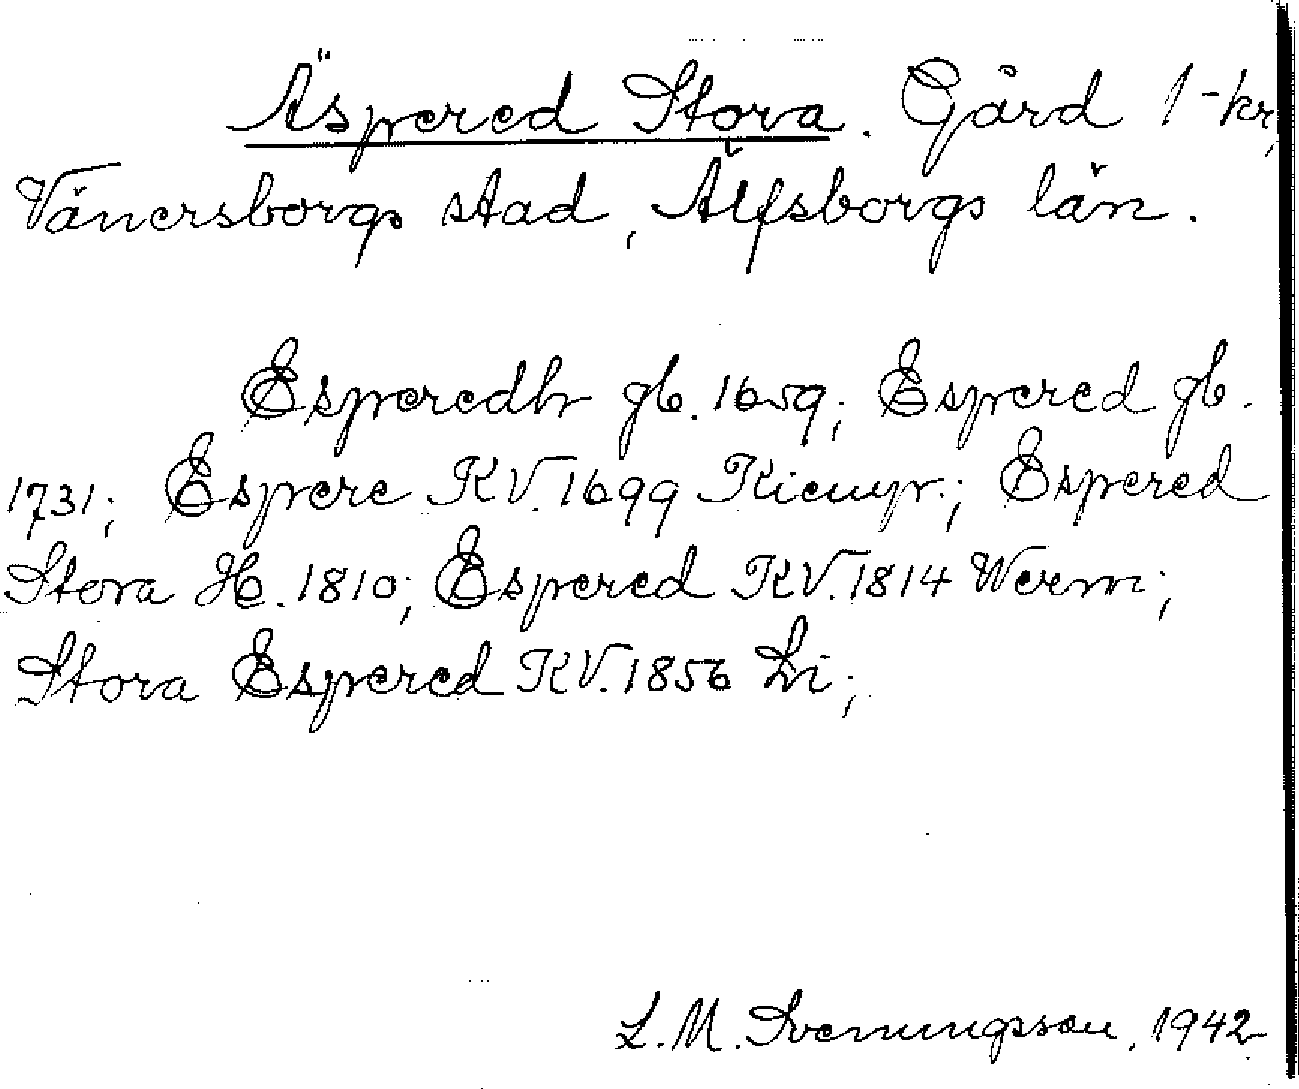 Äspered Stora. Gård 1-kr,
Vänersborgs stad, Älfsborgs län.
Esperedh gb. 1659; Espered gb.
1731; Espere KV. 1699 Kiempr.; Espered
Stora He. 1810; Espered KV. 1814 Werm;
Stora Espered KV. 1856 Li;
L. M. Svenungsson, 1942